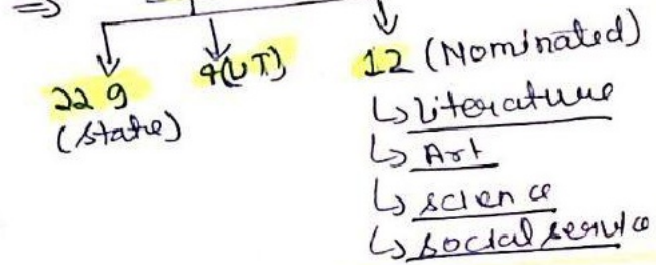 ⇒
229 4(UT) 12 (Nominated)
(state)
↳ literature
↳ Art
↳ science
↳ social service